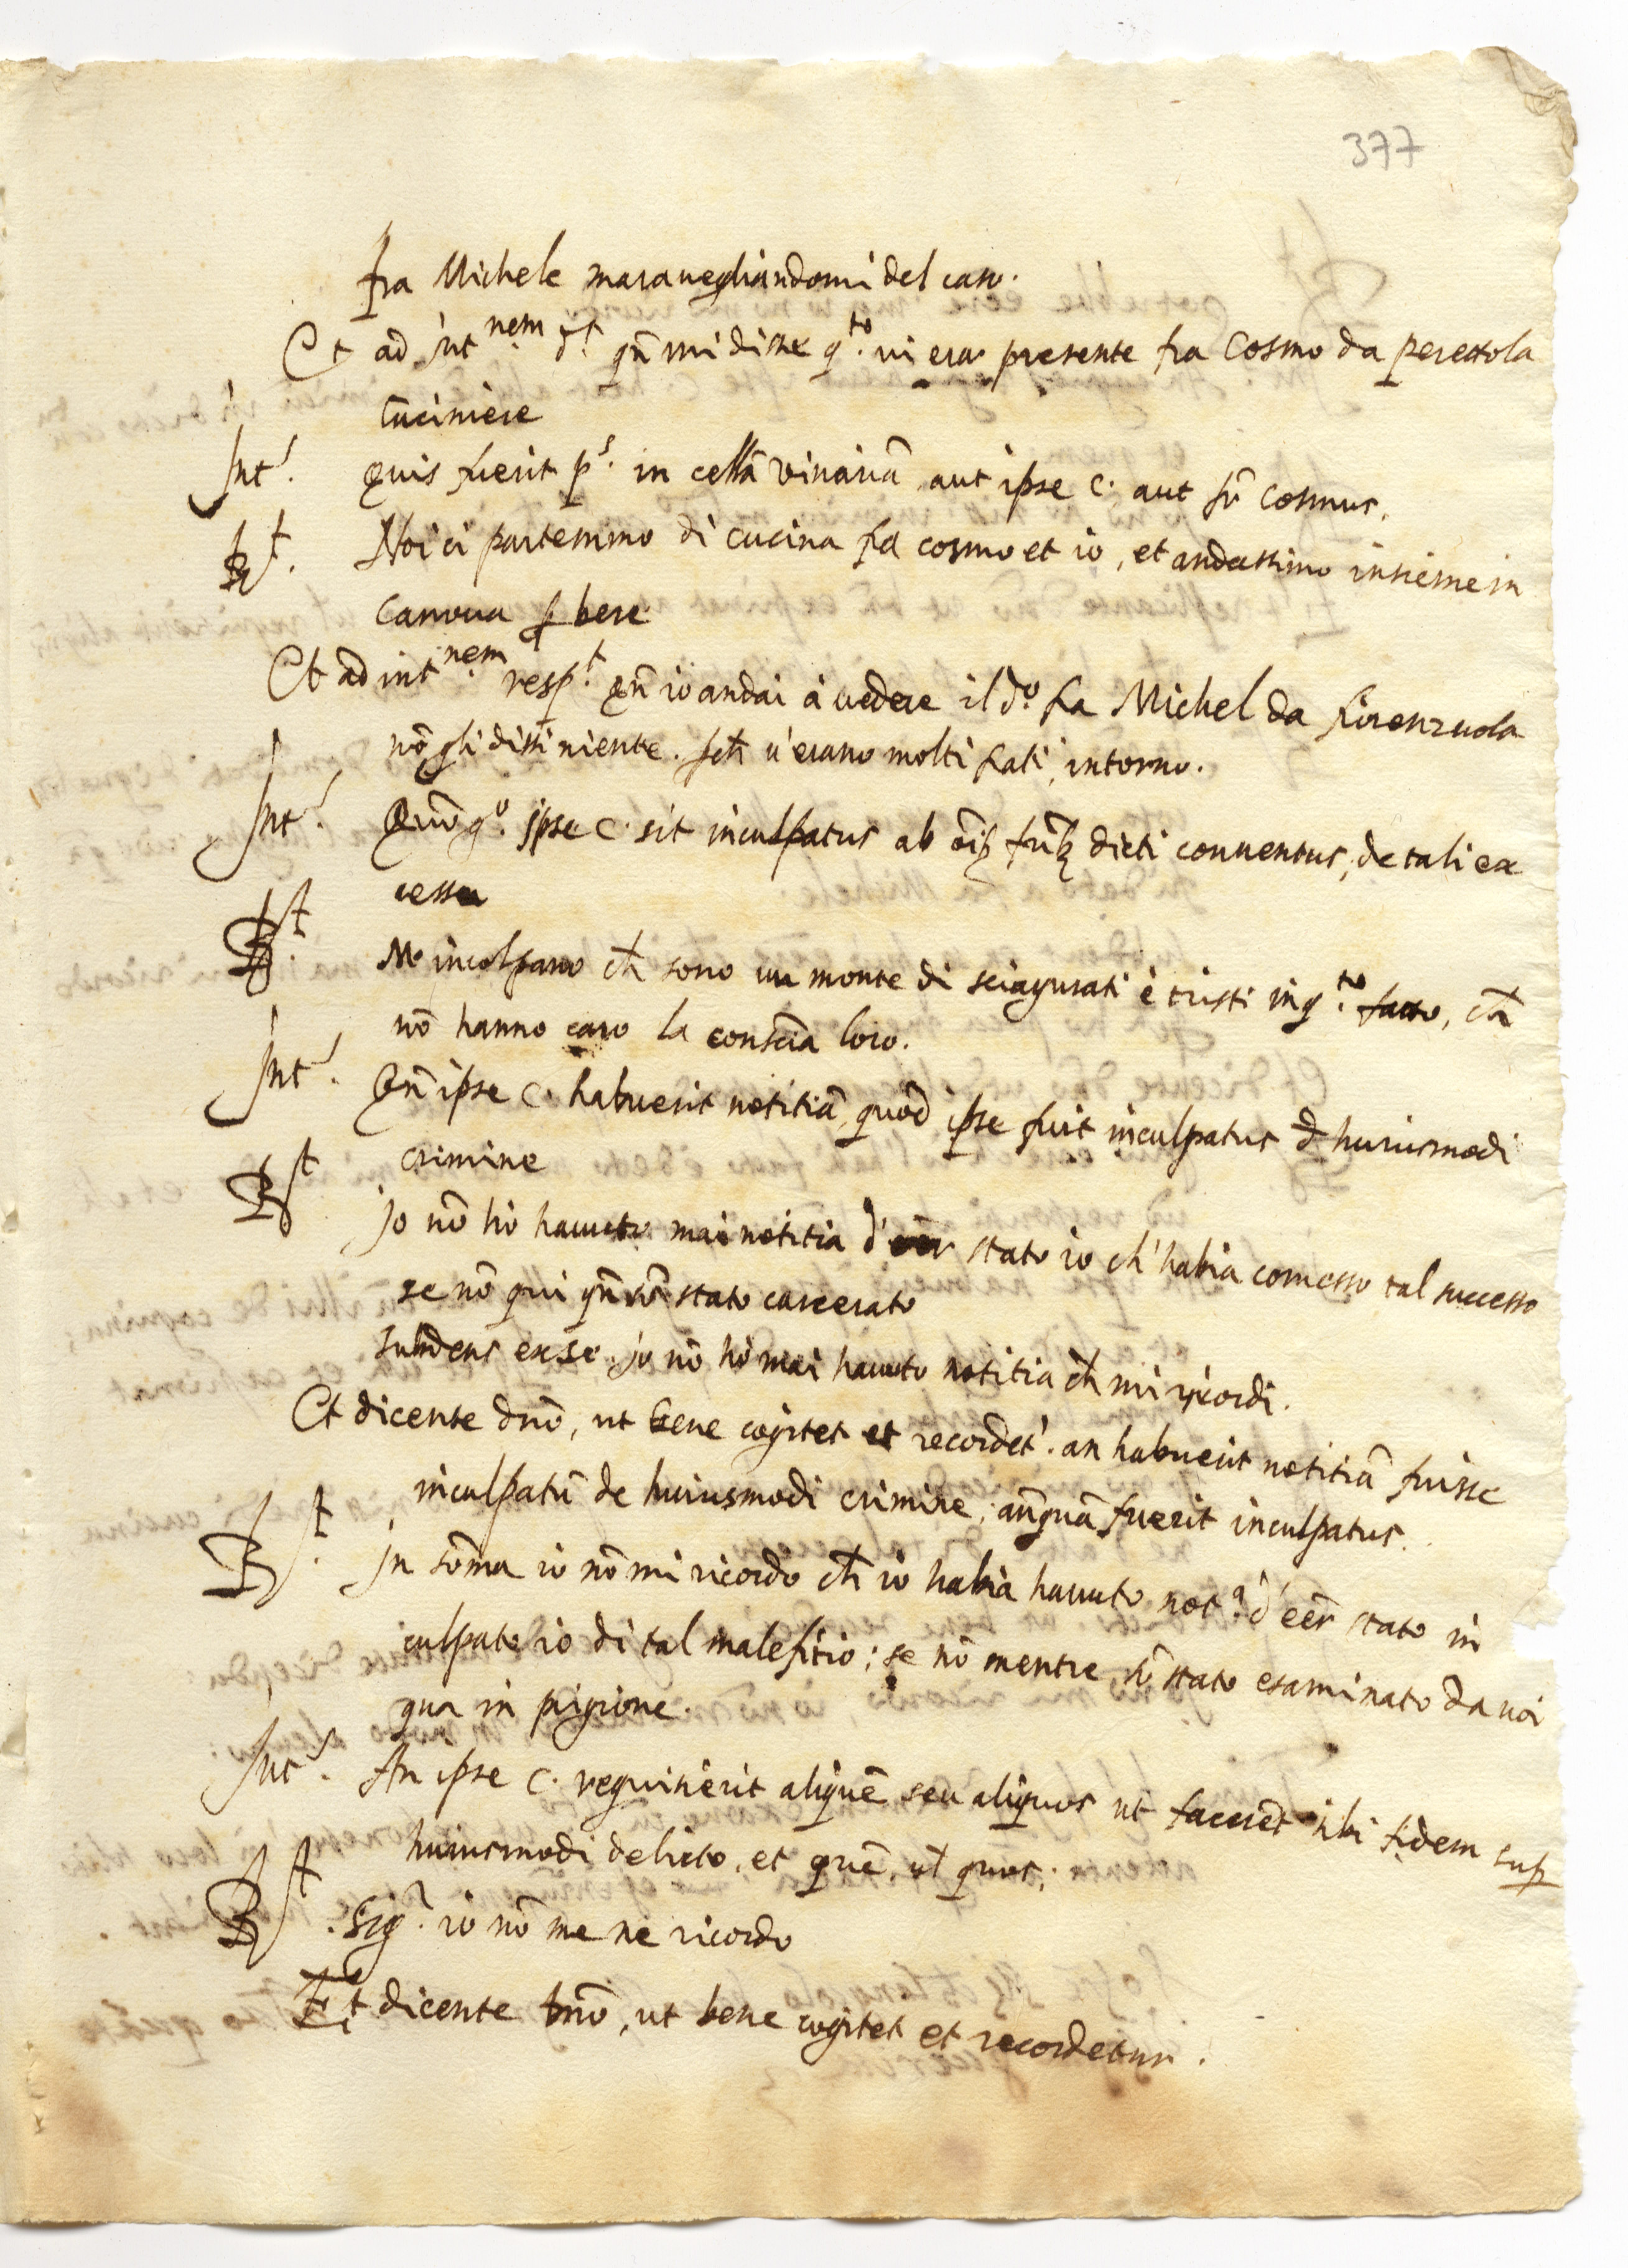 377
fra Michele maravegliandomi del caso.
Et ad Int.nem d.t qn̄ mi disse q.to vi era presente fra Cosmo da peretola
cuciniere
Int.s Quis fuerit p.s in cellā vinariā aut ipse C. aut fr̄ Cosmus.
R.t Noi ci partemmo di cucina fra cosmo et io, et andassimo insieme in
canova p bere
Et ad int.nem resp.t qn̄ io andai à vedere il d.o fra Michel da fiorenzuola
nō gli dissi niente. sch̄ v'erano molti frati intorno.
Int.s Quō q.o ipse C. sit inculpatus ab oīb frīb dicti conventus, de tali ex
cessu
R.t Me incolpano ch̄ sono un monte di sciagurati è tristi in q.to fatto, ch̄
nō hanno caro la consciā loro.
Int.s Qn̄ ipse C. habuerit notitiā, quod ipse fuit inculpatus d huiusmodi
crimine
R.t Jo nō hò havuto mai notitia d' eēr stato io ch' habia comesso tal successo
se nō qui qn̄ sō stato carcerato
subdens ex se. jo nō hò mai havuto notitia ch̄ mi ricordi.
Et dicente dnō, ut bene cogitet et recordet.r an habuerit notitiā fuisse
inculpatū de huiusmodi crimine, antquā fuerit inculpatus.
R.t Jn sōma io nō mi ricordo ch̄ io habia havuto not.a d' eēr stato in
culpato io di tal malefitio; se nō mentre sō stato esaminato da voi
qua in pigione.
Int.s An ipse C. requisierit aliquē seu aliquos ut faceret sibi fidem sup
huiusmodi delicto, et quē, ut quos;
R.t Sig.r io nō me ne ricordo
Et dicente dnō, ut bene cogitet et recordetur.